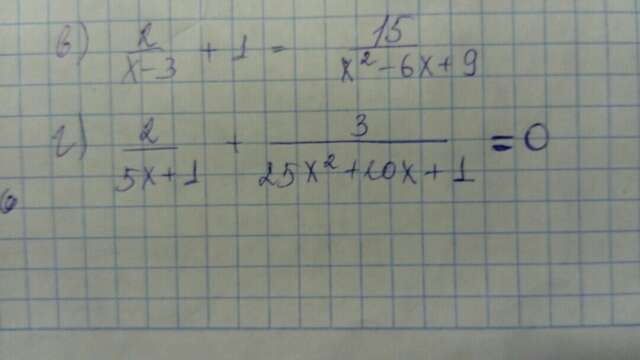 в) 2/(x-3) + 1 = 15/(x²-6x+9)
г) 2/(5x+1) + 3/(25x²+10x+1) = 0